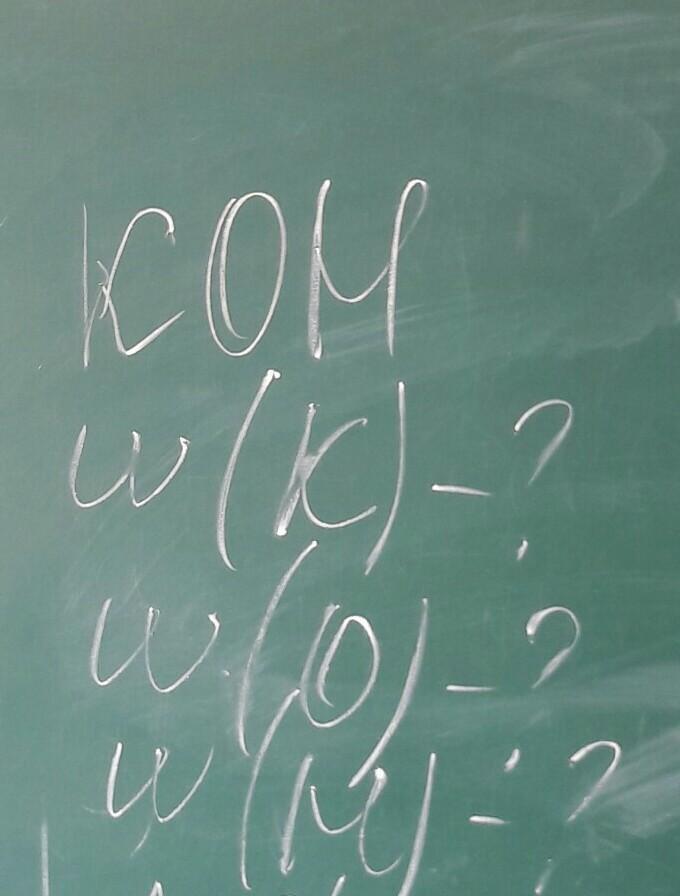 KOH
w(K) - ?
w(O) - ?
w(H) - ?